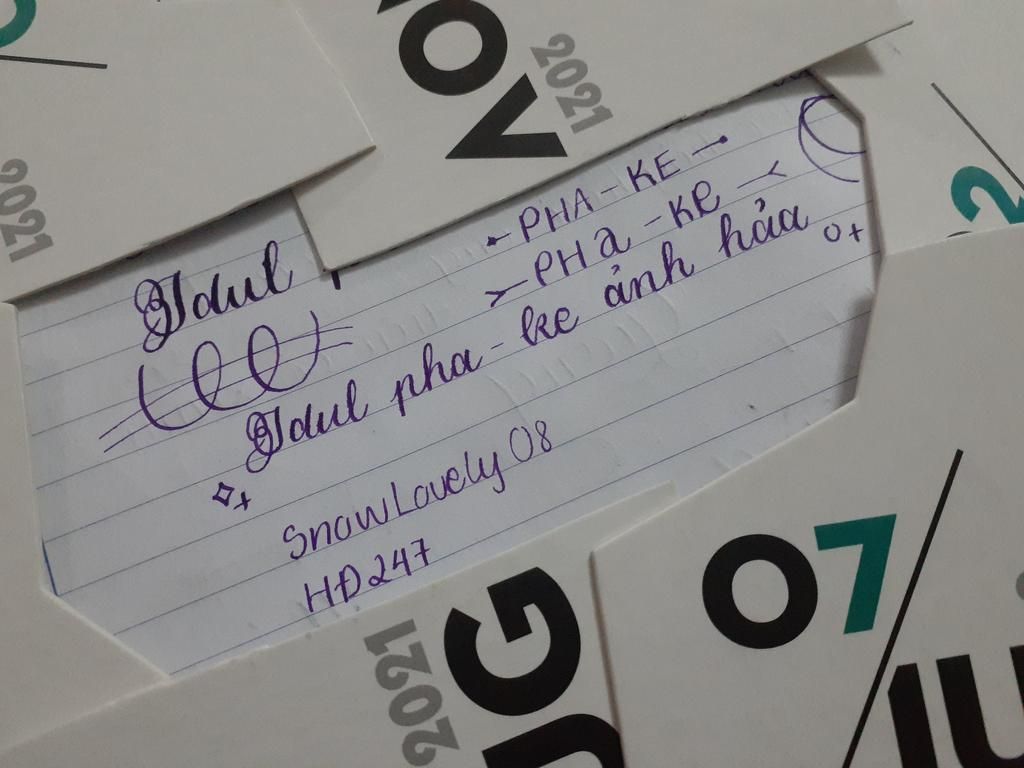 2021
OV
2021
PHA-KE
Idul
PHa-Ke
Idul pha-ke ảnh hảa
SnowLovely 08
HĐ247
2021
UG
07
2